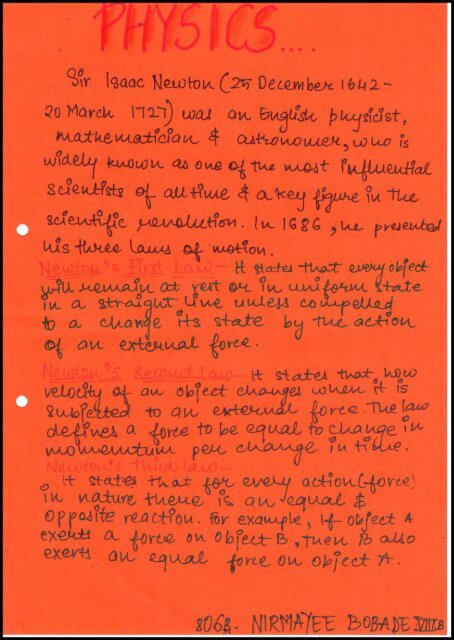 PHYSICS....
Sir Isaac Newton (25 December 1642 -
20 March 1727) was an English physicist,
mathematician & astronomer, who is
widely known as one of the most influential
scientists of all time & a key figure in the
scientific revolution. In 1686, he presented
his three laws of motion.
Newton's First Law - It states that every object
will remain at rest or in uniform state
in a straight line unless compelled
to a change its state by the action
of an external force.
Newton's Second Law - It states that how
velocity of an object changes when it is
subjected to an external force. The law
defines a force to be equal to change in
momentum per change in time.
Newton's third law -
It states that for every action (force)
in nature there is an equal &
opposite reaction. For example, If object A
exerts a force on object B, then B also
exerts an equal force on object A.
806B- NIRMAYEE BOBADE VIII.B